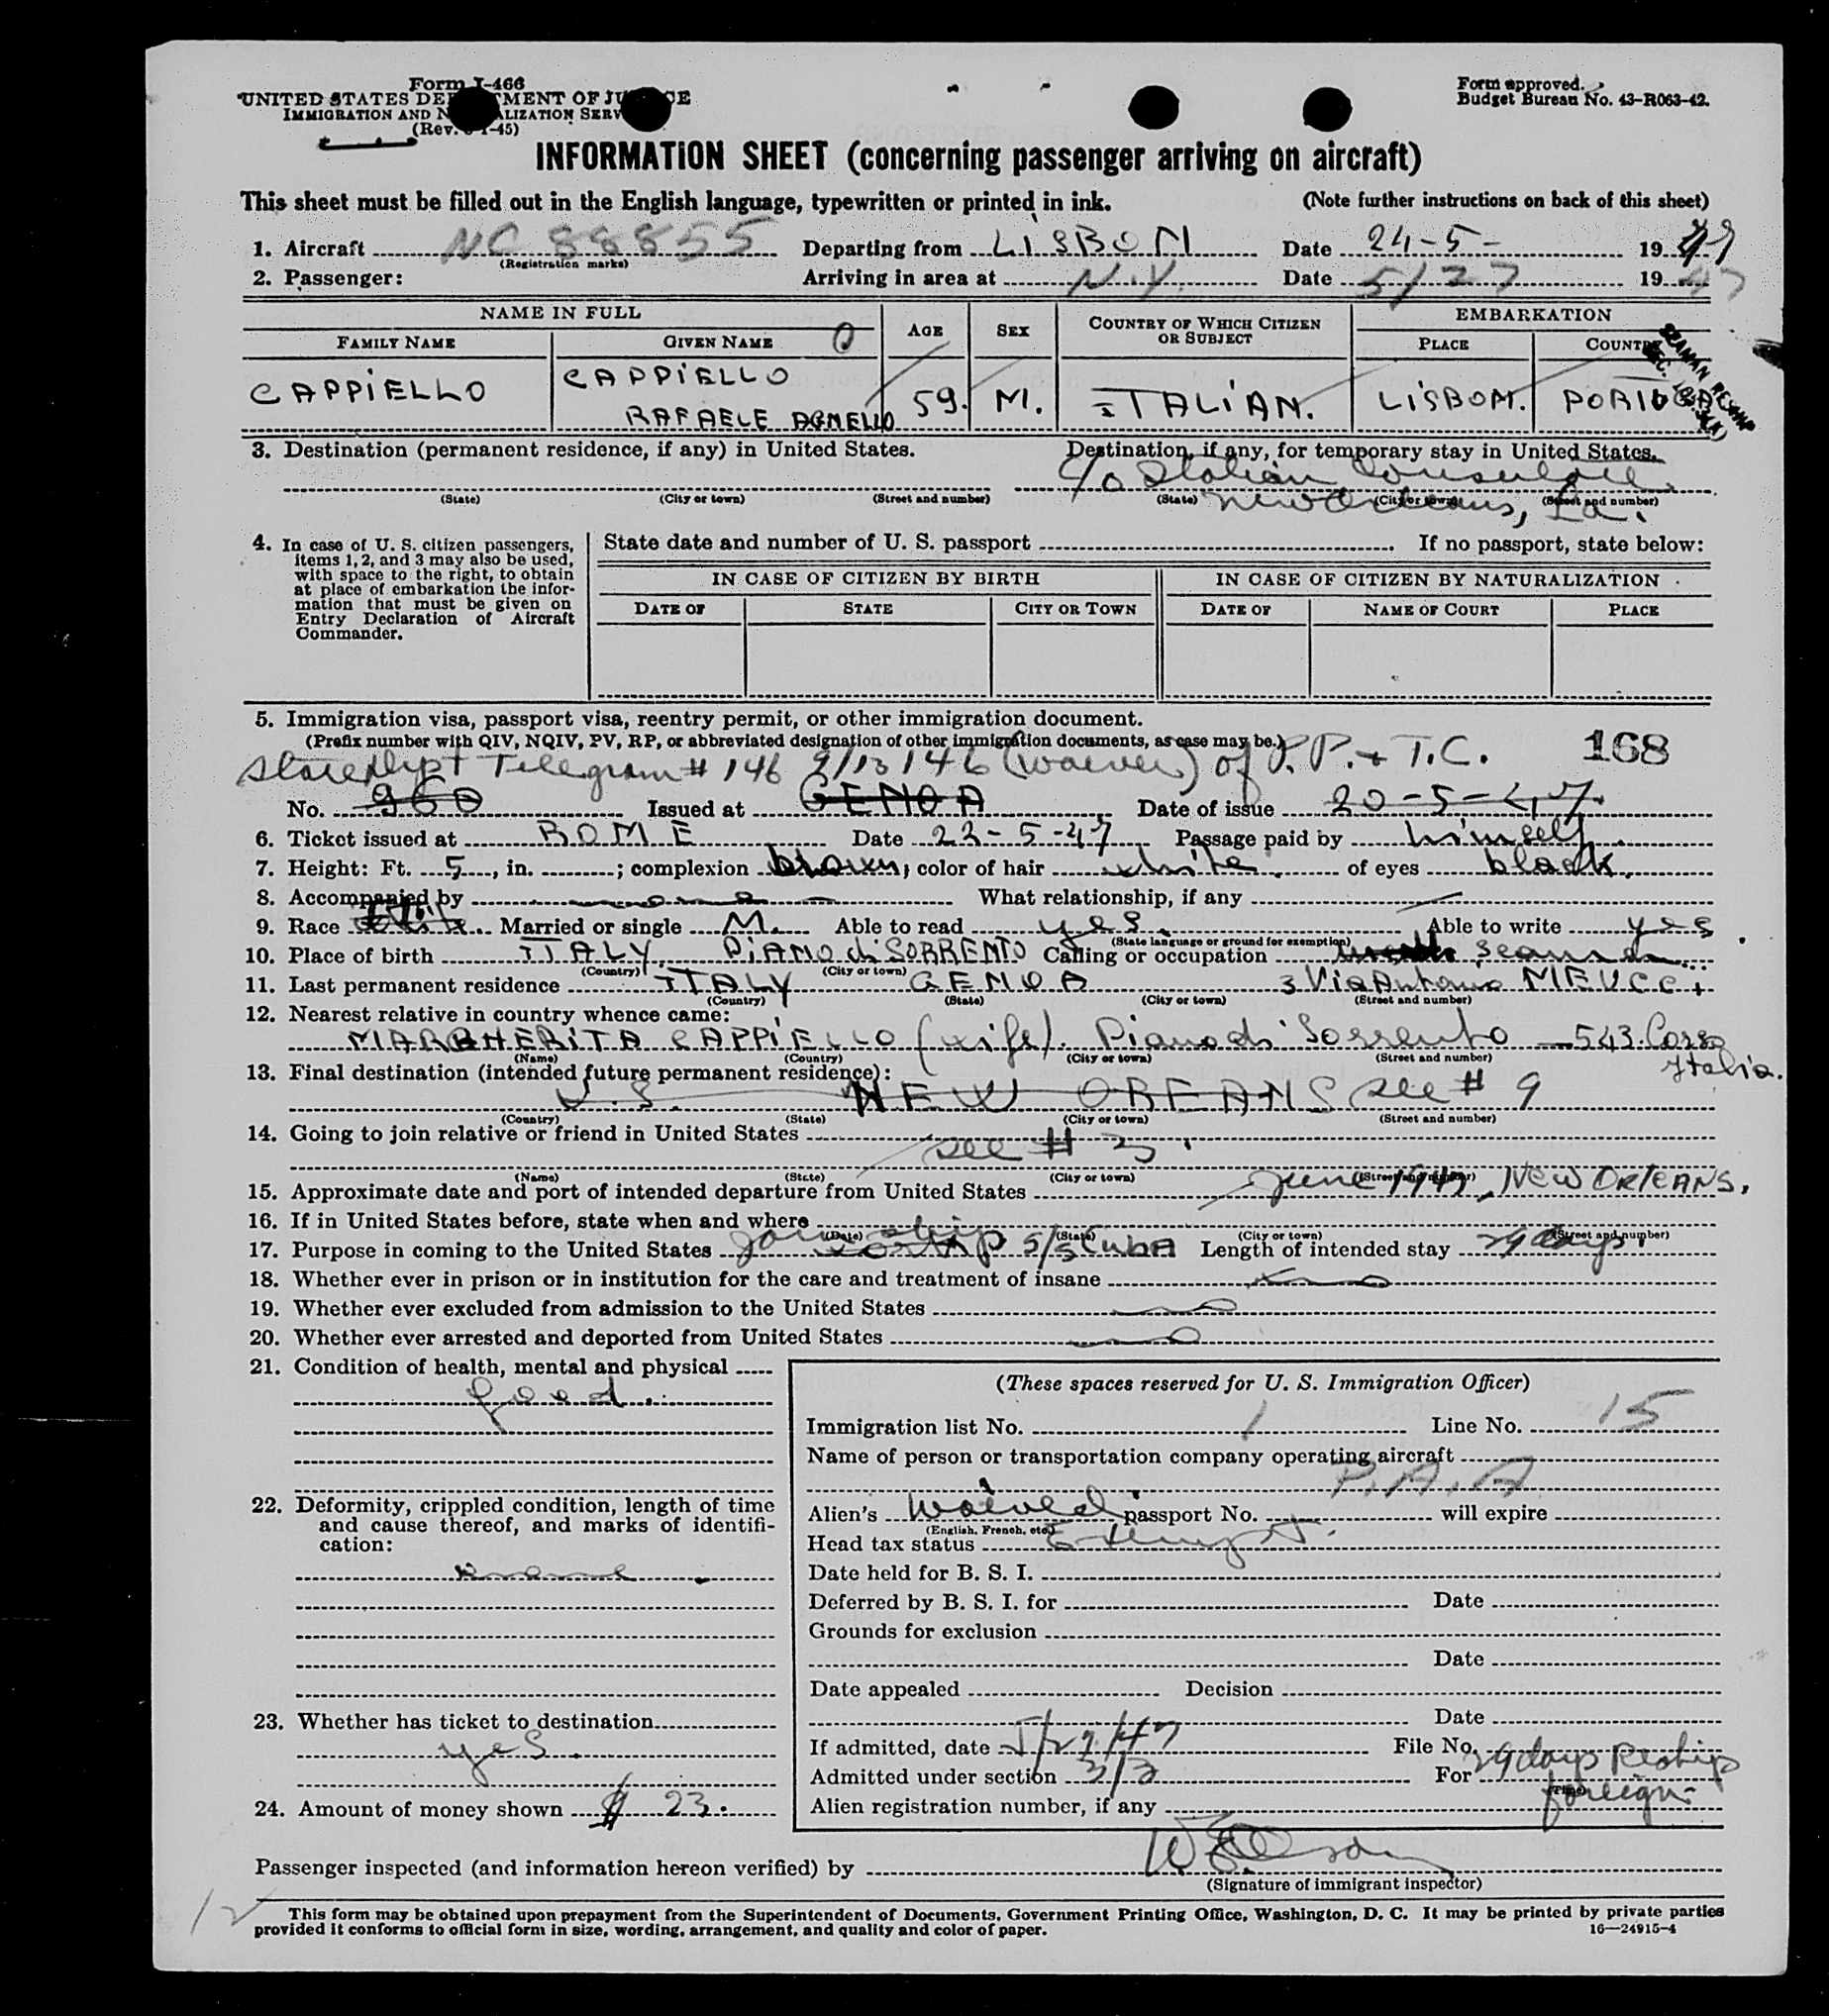 Form I-466
UNITED STATES DEPARTMENT OF JUSTICE
IMMIGRATION AND NATURALIZATION SERVICE
(Rev. 1-45)
Form approved.
Budget Bureau No. 43-R063-42.
INFORMATION SHEET (concerning passenger arriving on aircraft)
This sheet must be filled out in the English language, typewritten or printed in ink. (Note further instructions on back of this sheet)
1. Aircraft NC 88855 Departing from LISBON Date 24-5- 1947
(Registration marks)
2. Passenger: Arriving in area at N.Y. Date 5/27 1947
NAME IN FULL AGE SEX COUNTRY OF WHICH CITIZEN OR SUBJECT EMBARKATION
FAMILY NAME GIVEN NAME PLACE COUNTRY
CAPPIELLO CAPPIELLO
RAFAELE AGNELLO 59. M. ITALIAN. LISBON. PORTUGAL
3. Destination (permanent residence, if any) in United States. Destination, if any, for temporary stay in United States.
c/o Italian Consulate
(State) (City or town) (Street and number) (State) (City or town) (Street and number)
New Orleans, La.
4. In case of U. S. citizen passengers, items 1, 2, and 3 may also be used, with space to the right, to obtain at place of embarkation the information that must be given on Entry Declaration of Aircraft Commander.
State date and number of U. S. passport If no passport, state below:
IN CASE OF CITIZEN BY BIRTH IN CASE OF CITIZEN BY NATURALIZATION
DATE OF STATE CITY OR TOWN DATE OF NAME OF COURT PLACE
5. Immigration visa, passport visa, reentry permit, or other immigration document.
(Prefix number with QIV, NQIV, PV, RP, or abbreviated designation of other immigration documents, as case may be.)
State Dept Telegram # 146 9/13/46 (waiver) of P.P. + T.C. 168
No. 960 Issued at GENOA Date of issue 20-5-47.
6. Ticket issued at ROME Date 22-5-47 Passage paid by himself.
7. Height: Ft. 5, in. ; complexion brown; color of hair white. of eyes black.
8. Accompanied by What relationship, if any
9. Race Married or single M. Able to read yes. Able to write yes
(State language or ground for exemption)
10. Place of birth ITALY. PIANO di SORRENTO Calling or occupation seaman
(Country) (City or town)
11. Last permanent residence ITALY GENOA 3 Via Antonio MEUCCI
(Country) (State) (City or town) (Street and number)
12. Nearest relative in country whence came:
MARGHERITA CAPPIELLO (wife). Piano di Sorrento — 543. Corso Italia.
(Name) (Country) (City or town) (Street and number)
13. Final destination (intended future permanent residence):
U.S. NEW OREANS see # 9
(Country) (State) (City or town) (Street and number)
14. Going to join relative or friend in United States
see # 3.
(Name) (State) (City or town) (Street and number)
15. Approximate date and port of intended departure from United States June 1947, NEW ORLEANS.
16. If in United States before, state when and where
(Date) (State) (City or town) (Street and number)
17. Purpose in coming to the United States Join ship S/S Cuba Length of intended stay 29 days.
18. Whether ever in prison or in institution for the care and treatment of insane no
19. Whether ever excluded from admission to the United States no
20. Whether ever arrested and deported from United States no
21. Condition of health, mental and physical
good.
22. Deformity, crippled condition, length of time and cause thereof, and marks of identification:
none.
23. Whether has ticket to destination
yes.
24. Amount of money shown $ 23.
(These spaces reserved for U. S. Immigration Officer)
Immigration list No. 1 Line No. 15
Name of person or transportation company operating aircraft
P.A.A
Alien's Waived passport No. will expire
(English, French, etc.)
Head tax status Exempt.
Date held for B. S. I.
Deferred by B. S. I. for Date
Grounds for exclusion
Date
Date appealed Decision
Date
If admitted, date 5/27/47 File No.
Admitted under section 3/3 For 29 days Reship
(Time)
foreign
Alien registration number, if any
Passenger inspected (and information hereon verified) by
(Signature of immigrant inspector)
12
This form may be obtained upon prepayment from the Superintendent of Documents, Government Printing Office, Washington, D. C. It may be printed by private parties
provided it conforms to official form in size, wording, arrangement, and quality and color of paper. 16—24915-4